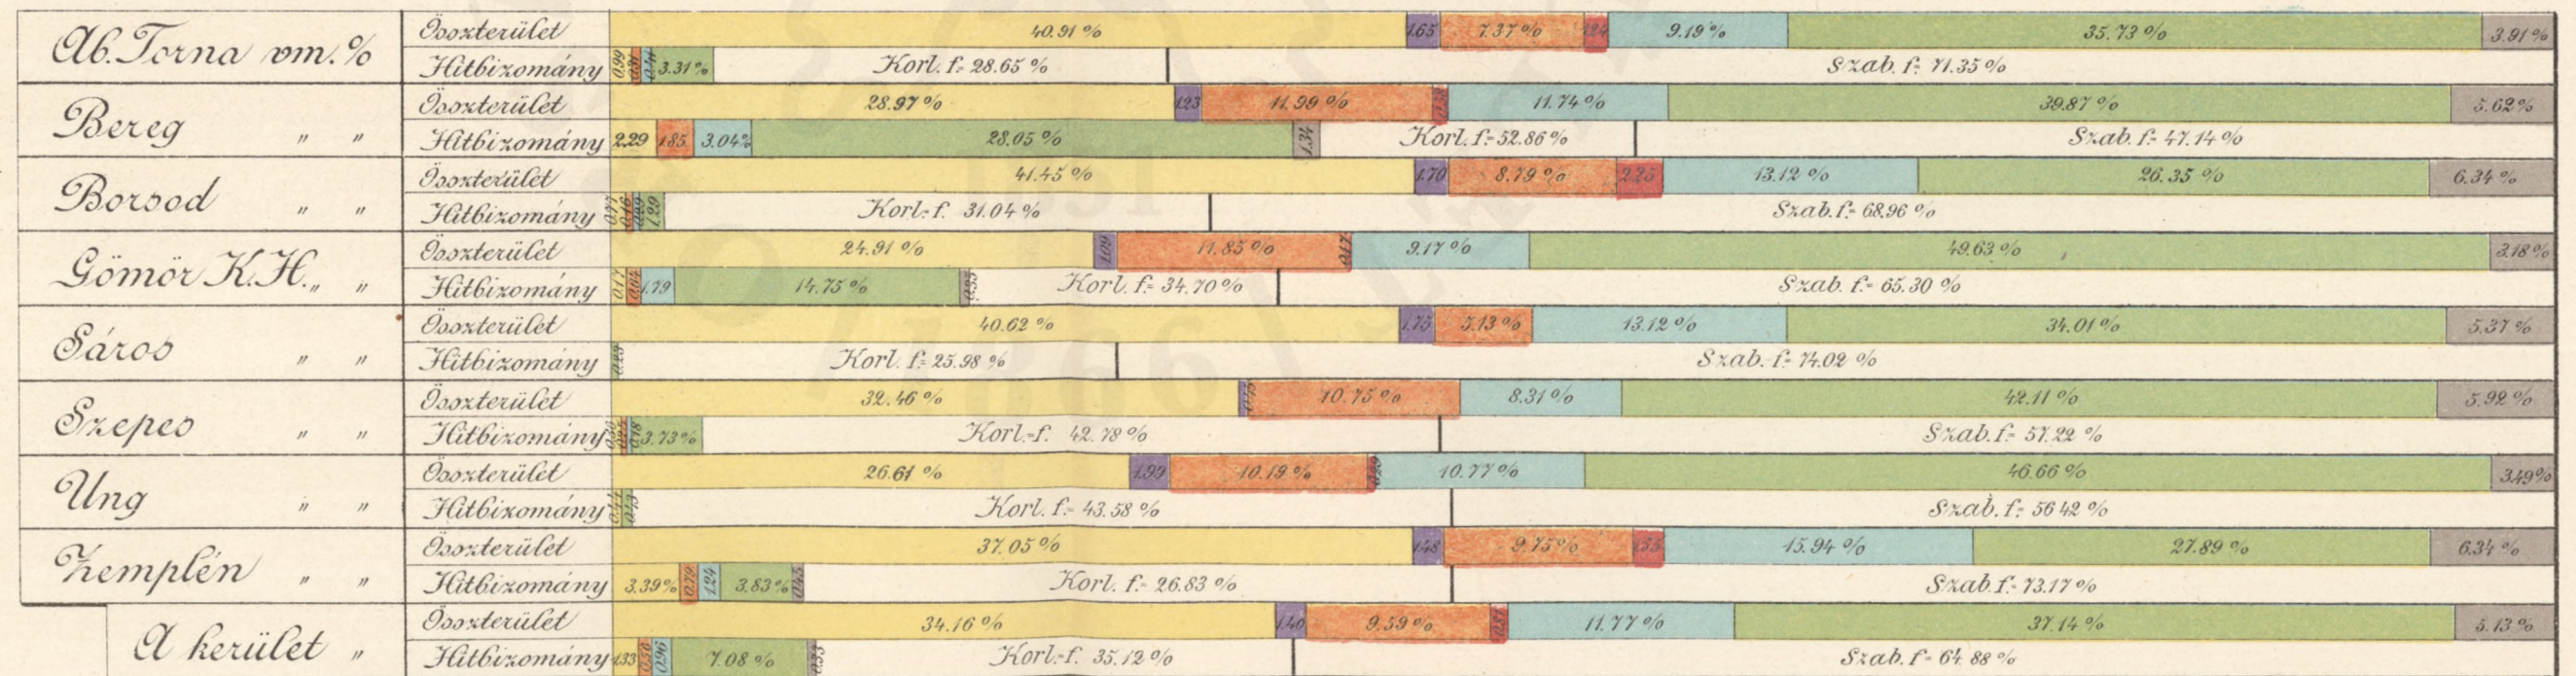 Ab. Torna vm. %
Összterület 40.91 % 1.65 7.37 % 1.24 9.19 % 35.73 % 3.91 %
Hitbizomány 0.99 0.41 3.31 % Korl. f. = 28.65 % Szab. f. = 71.35 %
Bereg " "
Összterület 28.97 % 1.23 11.99 % 11.74 % 39.87 % 5.62 %
Hitbizomány 2.29 1.85 3.04 % 28.05 % 1.34 Korl. f. = 52.86 % Szab. f. = 47.14 %
Borsod " "
Összterület 41.45 % 1.70 8.79 % 2.25 13.12 % 26.35 % 6.34 %
Hitbizomány 1.29 Korl. f. 31.04 % Szab. f. = 68.96 %
Gömör K.H. " "
Összterület 24.91 % 1.09 11.85 % 0.17 9.17 % 49.63 % 3.18 %
Hitbizomány 0.17 1.79 14.75 % Korl. f. = 34.70 % Szab. f. = 65.30 %
Sáros " "
Összterület 40.62 % 1.75 5.13 % 13.12 % 34.01 % 5.37 %
Hitbizomány Korl. f. = 25.98 % Szab. f. = 74.02 %
Szepes " "
Összterület 32.46 % 10.75 % 8.31 % 42.11 % 5.92 %
Hitbizomány 3.73 % Korl. = f. 42.78 % Szab. f. = 57.22 %
Ung " "
Összterület 26.61 % 1.99 10.19 % 0.29 10.77 % 46.66 % 3.49 %
Hitbizomány Korl. f. = 43.58 % Szab. f. = 56 42 %
Zemplén " "
Összterület 37.05 % 1.48 9.75 % 1.55 15.94 % 27.89 % 6.34 %
Hitbizomány 3.39 % 0.79 1.24 3.83 % 0.45 Korl. f. = 26.83 % Szab. f. = 73.17 %
A kerület "
Összterület 34.16 % 1.40 9.59 % 0.81 11.77 % 37.14 % 5.13 %
Hitbizomány 1.33 0.58 0.96 7.08 % 0.33 Korl. = f. 35.12 % Szab. f. = 64.88 %